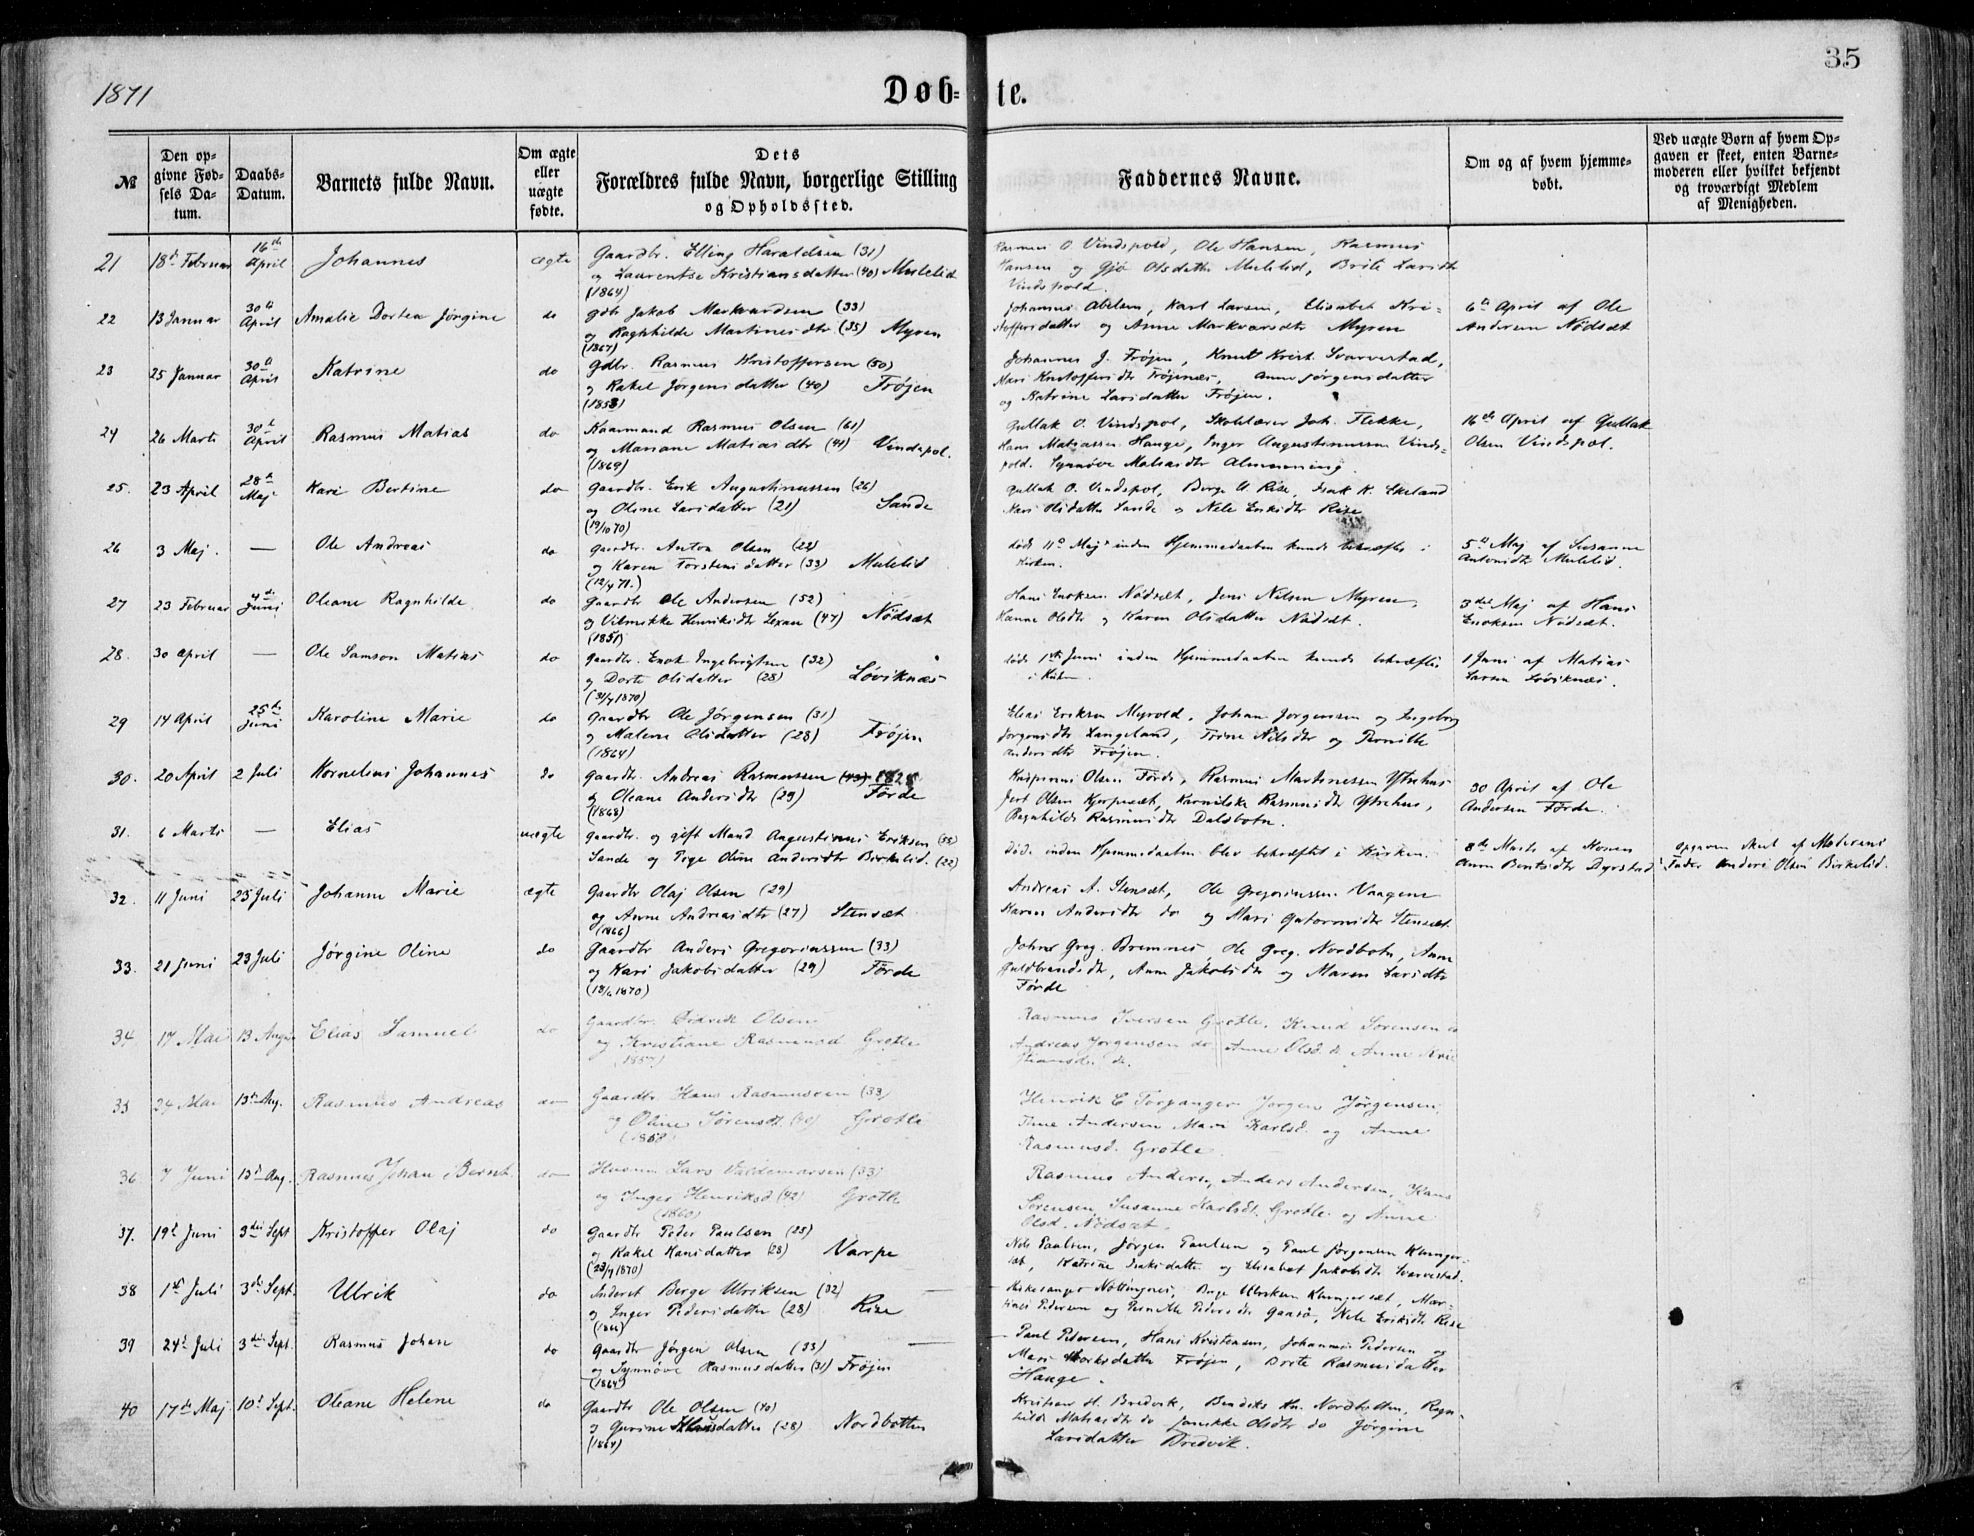 1871
Døb=te.
35
№
Den op=
givne Fød=
sels Da=
tum.
Daabs=
Datum.
Barnets fulde Navn.
Om ægte
eller
uægte
fødte.
Dets
Forældres fulde Navn, borgerlige Stilling
og Opholdssted.
Faddernes Navne.
Om og af hvem hjemme=
døbt.
Ved uægte Børn af hvem Op=
gaven er skeet, enten Barne=
moderen eller hvilket bekjendt
og troværdigt Medlem
af Menigheden.
21 18de Februar 16de April Johannes ægte Gaardbr. Elling Haraldsen (31)
og Laurentse Kristiansdatter (40) Mulelid
(1864)
Rasmus O. Vindspold, Ole Hansen, Rasmus
Hansen og Gjø Olsdatter Mulelid, Brite Larsdtr
Vindspold.
22 13 Januar 30te April Amalie Dortea Jørgine do Gdbr Jakob Markvardsen (33)
og Ragnhilde Martinesdtr (35) Myren
(1867)
Johannes Abelsen, Karl Larsen, Elisabet Kri=
stoffersdatter og Anne Markvarsdtr Myren
6te April af Ole
Andersen Nødsæt
23 25 Januar 30te April Katrine do Gdbr. Rasmus Kristoffersen (50)
og Rakel Jørgensdatter (40) Frøjen
(1853)
Johannes J. Frøjen, Knut Krist. Svarvestad,
Mari Kristoffersdtr Frøjenæs, Anne Jørgensdatter
og Katrine Larsdatter Frøjen.
24 26 Marts 30te April Rasmus Matias do Kaarmand Rasmus Olsen (61)
og Mariane Matiasdtr (41) Vindspol.
(1869)
Gullak O. Vindspol, Skolelærer Joh. Flekke,
Hans Matiassen Hauge, Inger Augustinussen Vinds=
pold. Synnøve Matiasdtr Almenning.
16de April af Gullak
Olsen Vindspol.
25. 23 April 28de Maj Kari Bertine do Gaardbr. Erik Augustinussen (26)
og Oline Larsdatter (21) Sande
(19/10 70)
Gullak O. Vindspol, Berge U. Rise, Isak K. Ekeland
Mari Olsdatter Sande og Nele Eriksdtr Rise
26 3 Maj. — Ole Andreas do Gaardbr. Anton Olsen (22)
og Karen Torstensdatter (33) Mulelid
(12/4 71.)
død 11te Maj inden Hjemmedaaben kunde bekræftes i
Kirken.
5te Maj af Susanne
Antonsdtr Mulelid.
27 23 Februar 4de Juni Oleane Ragnhilde do Gaardbr Ole Andersen (52)
og Vilmikke Henriksdtr Lexau (47) Nødsæt
(1851)
Hans Enoksen Nødsæt, Jens Nilsen Myren,
Hanne Olsdtr og Karen Olsdatter Nødsæt.
3die Maj af Hans
Enoksen Nødsæt.
28. 30 April — Ole Samson Matias do Gaardbr. Enok Ingebrigtsen (32)
og Dorte Olsdatter (28) Løviknæs
(31/7 1870)
død 1ste Juni inden Hjemmedaaben kunde bekræftes
i Kirken.
1 Juni af Matias
Larsen Løviknæs.
29 14 April 25de Juni Karoline Marie do Gaardbr Ole Jørgensen (31)
og Malene Olsdatter (28) Frøjen
(1864)
Elias Eriksen Myrold, Johan Jørgensen og Ingeborg
Jørgensdtr Langeland, Trine Nilsdtr og Pernille
Andersdtr Frøjen.
30. 20 April 2 Juli Kornelius Johannes do Gaardbr. Andreas Rasmussen (43) 1828
og Oleane Andersdtr (29) Førde
(1868)
Kaspernus Olsen Førde, Rasmus Martinessen Ytrehus
Gert Olsen Kjerpesæt, Karnilske Rasmusdtr Ytrehus,
Ragnhilde Rasmusdtr Dalsbotn.
30 April af Ole
Andersen Førde.
31. 6 Marts — Elias uægte Gaardbr. og gift Mand Augustinus Eriksen (55)
Sande og Pige Oline Andersdtr Birkelid. (22)
Død inden Hjemmedaaben blev bekræftet i Kirken.
8de Marts af Konen
Anne Berntsdtr Dyrstad
Opgaven skeet af Moderens
Fader Anders Olsen Birkelid.
32. 11 Juni 23 Juli Johanne Marie ægte Gaardbr Olaj Olsen (29)
og Anne Andreasdtr (27) Stensæt
(1866)
Andreas A. Stensæt, Ole Gregoriussen Vaagene
Karen Andersdtr do og Mari Gutormsdtr Stensæt.
33. 21 Juni 23 Juli Jørgine Oline do Gaardbr Anders Gregoriussen (33)
og Kari Jakobsdatter (29) Førde
(18/6 1870)
Johns Greg. Bremnes, Ole Greg. Nordbotn, Anne
Guldbrandsdtr, Anne Jakobsdtr og Maren Larsdtr
Førde
34 17 Mai 13 Augu Elias Samuel do Gaardbr. Didrik Olsen
og Kristiane Rasmusd Grotle
(1857)
Rasmus Iversen Grotle. Knud Sørensen do
Andreas Jørgensen do Anne Olsd. do Anne Kri
stiansd. do.
35 24 Mai 13de Aug. Rasmus Andreas do Gaardbr. Hans Rasmussen (33)
og Oline Sørensdt. (40) Grotle
(1868)
Henrik E Torvanger Jørgen Jørgensen,
Tine Andersen Mari Karlsd. og Anne
Rasmusd. Grotle.
36 7 Juni 13de Aug. Rasmus Johan Bernt do Husm. Lars Valdemarsen (33)
og Inger Henriksd (42) Grotle
(1860)
Rasmus Anders., Anders Andersen, Hans
Sørensen, Susanne Karlsdt. Grotle og Anne
Olsd. Nødsæt.
37. 19de Juni 3die Sept Kristoffer Olaj do Gaardbr Peder Paulsen (25)
og Rakel Hansdatter (28) Varpe
(23/7 1870)
Nils Paulsen, Jørgen Paulsen og Paul Jørgensen Klungre=
sæt, Katrine Isaksdatter og Elisabet Jakobsdtr Svarvestad.
38 1ste Juli 3die Sept. Ulrik do Inderst Berge Ulriksen (32) —
og Inger Pedersdatter (28) Rise
(1866)
Kirkesanger Nøttingnes, Berge Ulriksen Klungresæt, Mar=
tines Pedersen og Pernille Pedersdtr Gaasø, Nele Eriksdtr Rise
39 24de Juli 3die Sept. Rasmus Johan do Gaardbr Jørgen Olsen (33) —
og Synnøve Rasmusdatter (31) Frøjen
(1864)
Paul Pedersen, Hans Kristensen, Johannes Pedersen og
Mari Morksdatter Frøjen, Brite Rasmusdatter
Hauge.
40 17de Maj 10de Sept. Oleane Helene do Gaardbr Ole Olsen (40)
og Gurine Hansdatter (28) Nordbotten
(1864)
Kristian H. Bredvik, Bendiks An. Nordbotten, Ragn=
hilde Matiasdtr do Jonikke Olsdtr do Jørgine
Larsdatter Bredvik.